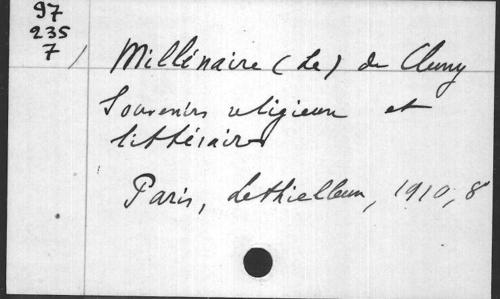 97
235
7
Millénaire (Le) de Cluny
Souvenirs religieux et
littéraires
Paris, Lethielleux, 1910, 8°